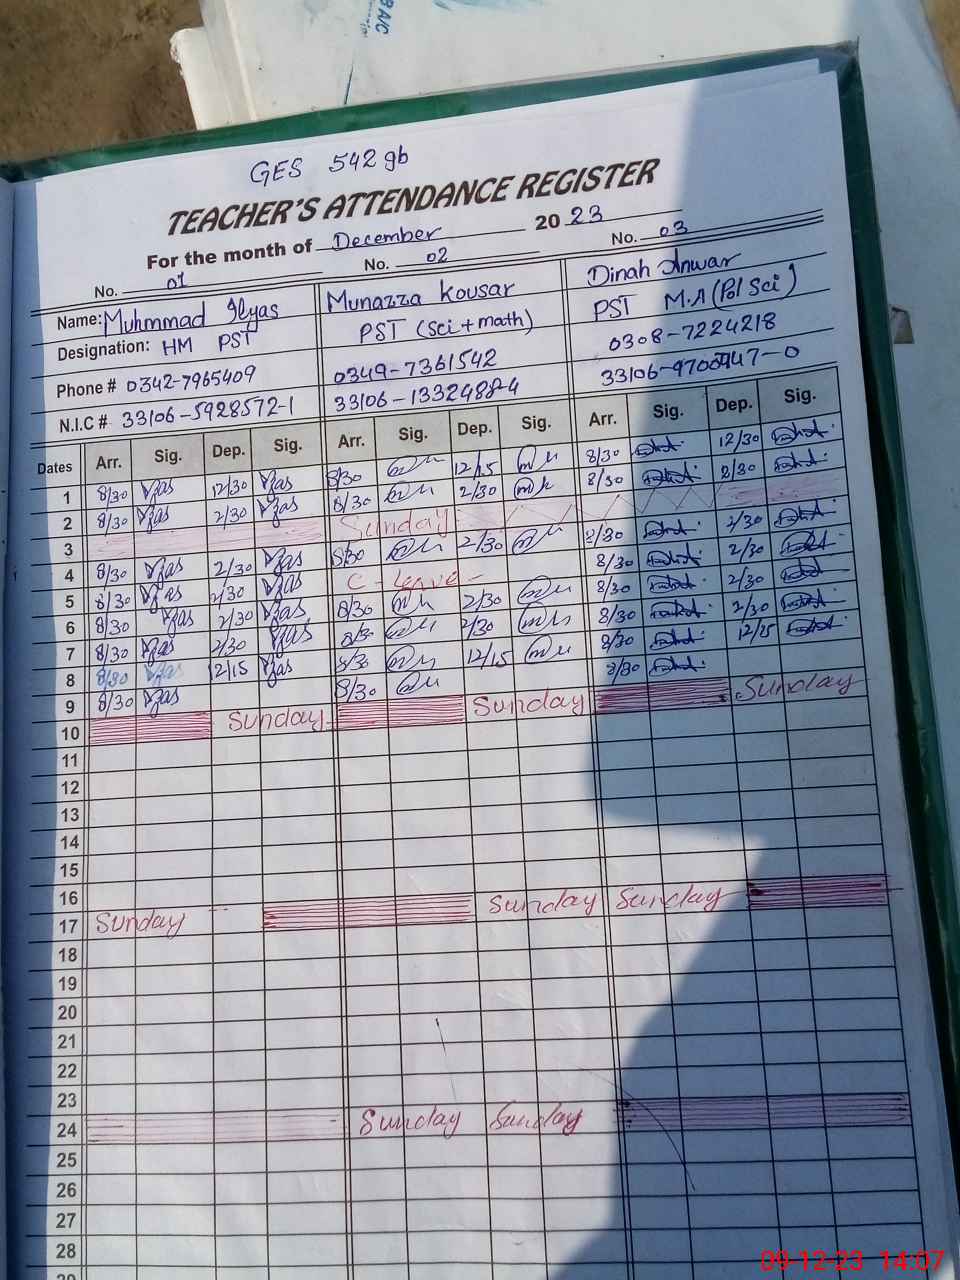 BA/C
GES 542 gb
TEACHER'S ATTENDANCE REGISTER
For the month of December 2023
No. 01 No. 02 No. 03
Name: Muhmmad Ilyas Munazza Kousar Dinah Anwar
Designation: HM PST PST (Sci + math) PST M.A (Pol Sci)
Phone # 0342-7965409 0349-7361542 0308-7224218
N.I.C # 33106-5928572-1 33106-1332488-4
Dates Arr. Sig. Dep. Sig. Arr. Sig. Dep. Sig. Arr. Sig. Dep. Sig.
1 8/30 Ilyas 12/30 Ilyas 8/30 12/15 8/30 12/30
2 8/30 Ilyas 2/30 Ilyas 8/30 2/30 8/30 2/30
3 Sunday
4 8/30 Ilyas 2/30 Ilyas 8/30 2/30 8/30 2/30
5 8/30 Ilyas 2/30 Ilyas C-leave- 8/30 2/30
6 8/30 Ilyas 2/30 Ilyas 8/30 2/30 8/30 2/30
7 8/30 Ilyas 2/30 Ilyas 8/30 2/30 8/30 2/30
8 8/30 Ilyas 12/15 Ilyas 8/30 12/15 8/30 12/15
9 8/30 Ilyas 8/30 8/30
10 Sunday Sunday Sunday
11
12
13
14
15
16
17 Sunday Sunday Sunday
18
19
20
21
22
23
24 Sunday Sunday
25
26
27
28
29
09-12-23 14:07